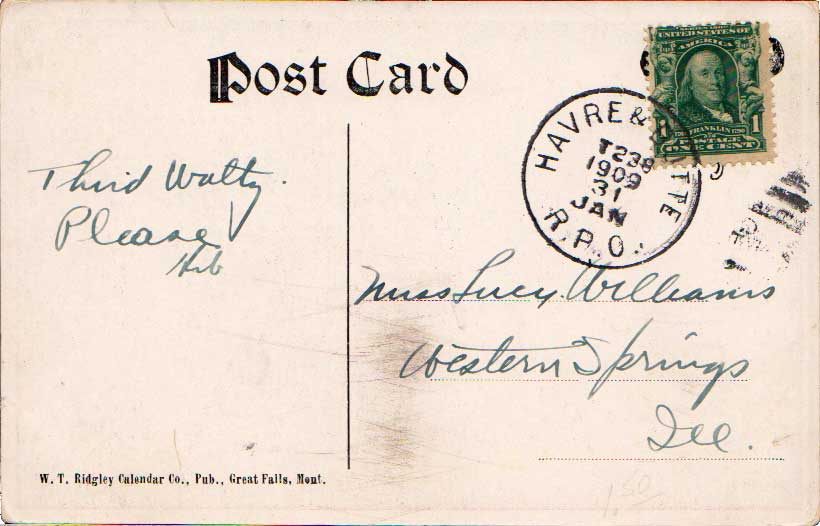 Post Card
UNITED STATES OF
AMERICA
1 FRANKLIN 1
POSTAGE
ONE CENT
HAVRE & BUTTE
T238
1909
31
JAN
R.P.O.
Third Waltz.
Please
Hib
Miss Lucy Williams
Western Springs
Ill.
W. T. Ridgley Calendar Co., Pub., Great Falls, Mont.
1.50